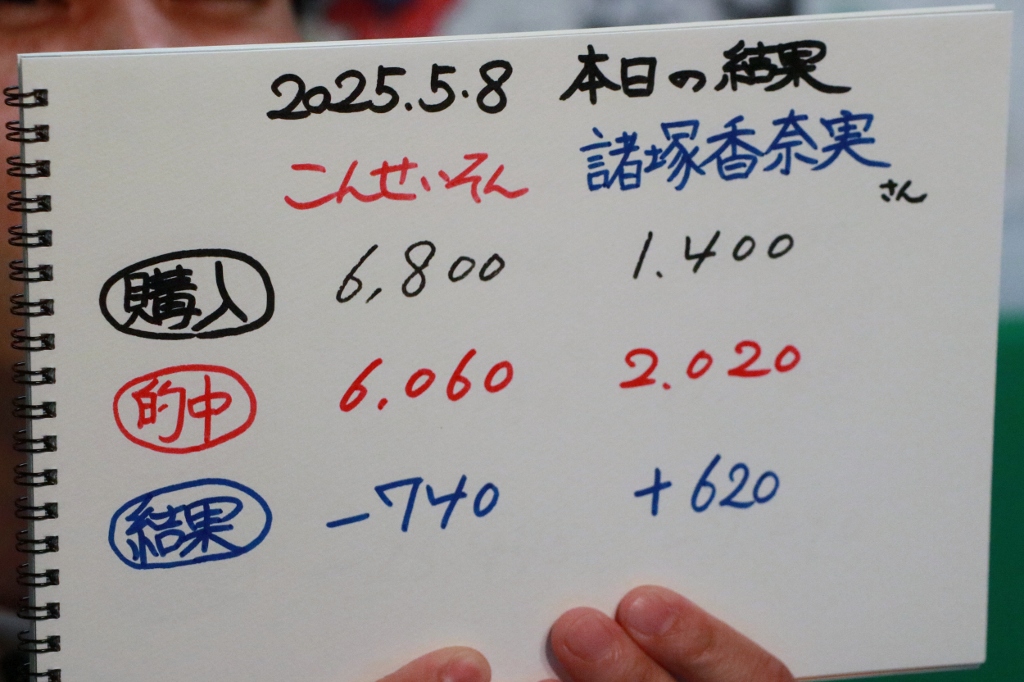 2025.5.8 本日の結果
こんせいそん 諸塚香奈実さん
購入 6,800 1.400
的中 6.060 2.020
結果 -740 +620